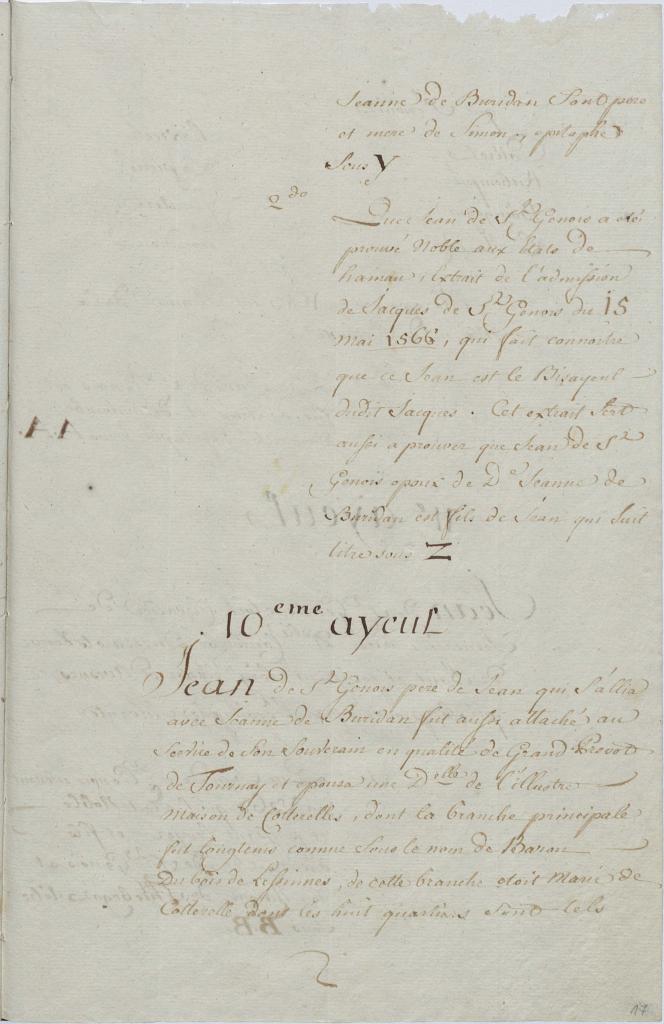 Jeanne de Buridan Sont pere
et mere de Simon, epitaphe
Sous Y
2do
Que Jean de St Genois a eté
prouvé Noble aux Etats de
hainau, Extrait de l'admission
de Jacques de St Genois du 15
mai 1566, qui fait connoitre
que ce Jean est le Bisayeul
dudit Jacques. Cet extrait Sert
aussi a prouver que Jean de St
Genois epoux de De Jeanne de
Buridan est fils de Jean qui Suit
titre sous Z
10eme ayeul
Jean de St Genois pere de Jean qui S'allia
avec Jeanne de Buridan fut aussi attaché au
Service de Son Souverain en qualité de Grand Prevot
de Tournay et epousa une Delle de l'illustre
Maison de Cotterelles, dont la branche principale
fut longtems connue Sous le nom de Baron
Dubois de Lessinnes, de cette branche etoit Marie de
Cotterelle dont les huit quartiers Sont tels
17